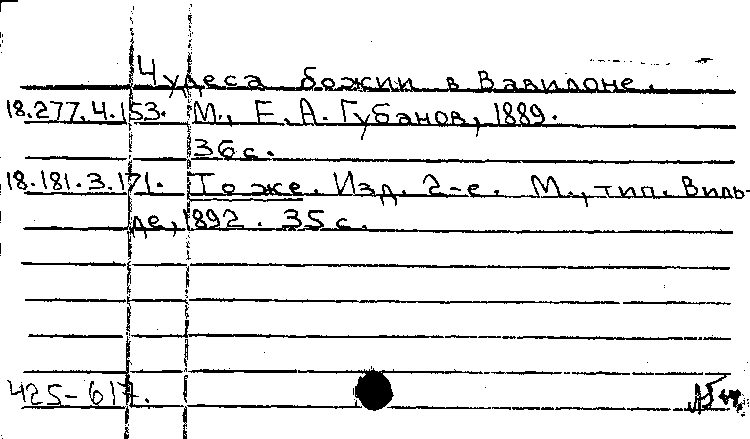 Чудеса божии в Вавилоне.
18.277.4.153. М., Е. А. Губанов, 1889.
36 с.
18.181.3.171. То же. Изд. 2-е. М., тип. Виль-
де, 1892. 35 с.
425-617.